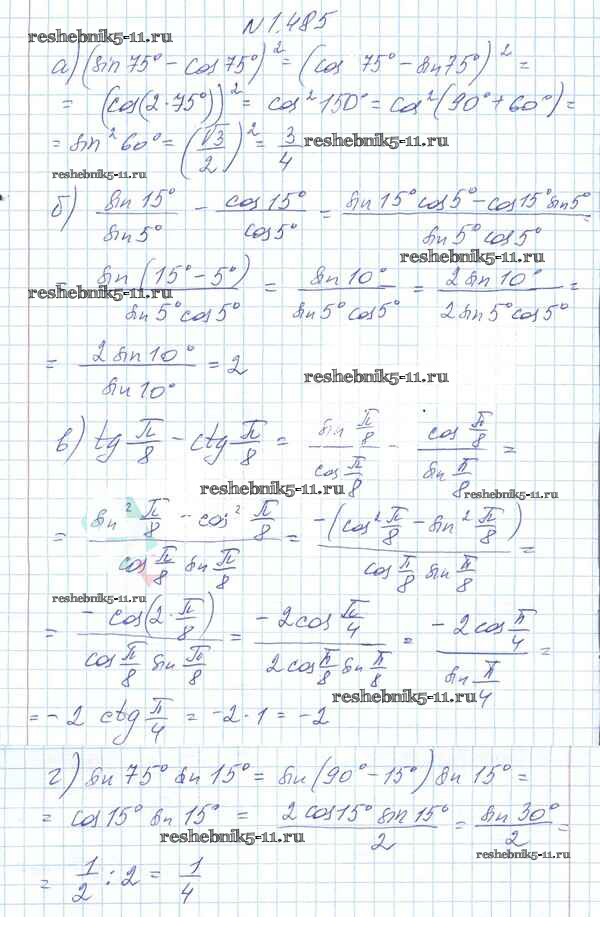 N 1.485
reshebnik5-11.ru
а) (sin 75° − cos 75°)² = (cos 75° − sin 75°)² =
= (cos(2·75°))² = cos² 150° = cos²(90° + 60°) =
= sin² 60° = (√3/2)² = 3/4 reshebnik5-11.ru
reshebnik5-11.ru
б) sin 15°/sin 5° − cos 15°/cos 5° = (sin 15° cos 5° − cos 15° sin 5°)/(sin 5° cos 5°)
reshebnik5-11.ru
= sin(15° − 5°)/(sin 5° cos 5°) = sin 10°/(sin 5° cos 5°) = 2 sin 10°/(2 sin 5° cos 5°) =
reshebnik5-11.ru
= 2 sin 10°/sin 10° = 2
reshebnik5-11.ru
в) tg π/8 − ctg π/8 = (sin π/8)/(cos π/8) − (cos π/8)/(sin π/8) =
reshebnik5-11.ru reshebnik5-11.ru
= (sin² π/8 − cos² π/8)/(cos π/8 sin π/8) = −(cos² π/8 − sin² π/8)/(cos π/8 sin π/8) =
reshebnik5-11.ru
= −cos(2·π/8)/(cos π/8 sin π/8) = −2cos π/4/(2cos π/8 sin π/8) = −2cos π/4/(sin π/4) =
reshebnik5-11.ru
= −2 ctg π/4 = −2·1 = −2
г) sin 75° sin 15° = sin(90° − 15°) sin 15° =
= cos 15° sin 15° = 2 cos 15° sin 15°/2 = sin 30°/2 =
reshebnik5-11.ru reshebnik5-11.ru
= 1/2 : 2 = 1/4